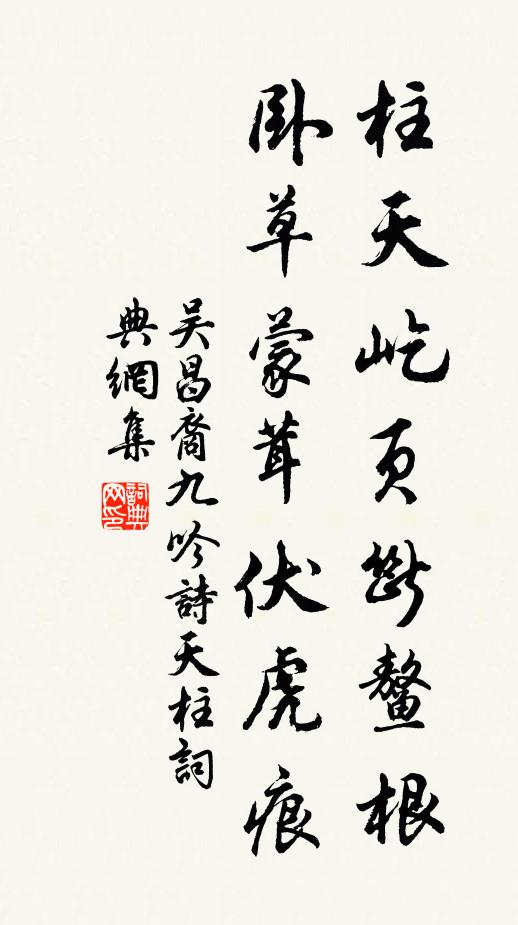 柱天屹页断鳌根
卧草蒙茸伏虎痕
吴昌裔九吟詩天柱詞
典網集
詞典
网印